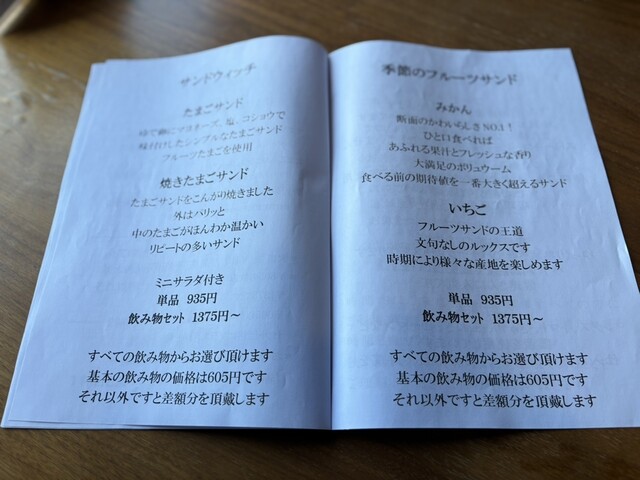 サンドウィッチ
たまごサンド
ゆで卵にマヨネーズ、塩、コショウで
味付けしたシンプルなたまごサンド
フルーツたまごを使用
焼きたまごサンド
たまごサンドをこんがり焼きました
外はパリッと
中のたまごがほんわか温かい
リピートの多いサンド
ミニサラダ付き
単品 935円
飲み物セット 1375円～
すべての飲み物からお選び頂けます
基本の飲み物の価格は605円です
それ以外ですと差額分を頂戴します
季節のフルーツサンド
みかん
断面のかわいらしさNO.1！
ひと口食べれば
あふれる果汁とフレッシュな香り
大満足のボリューム
食べる前の期待値を一番大きく超えるサンド
いちご
フルーツサンドの王道
文句なしのルックスです
時期により様々な産地を楽しめます
単品 935円
飲み物セット 1375円～
すべての飲み物からお選び頂けます
基本の飲み物の価格は605円です
それ以外ですと差額分を頂戴します